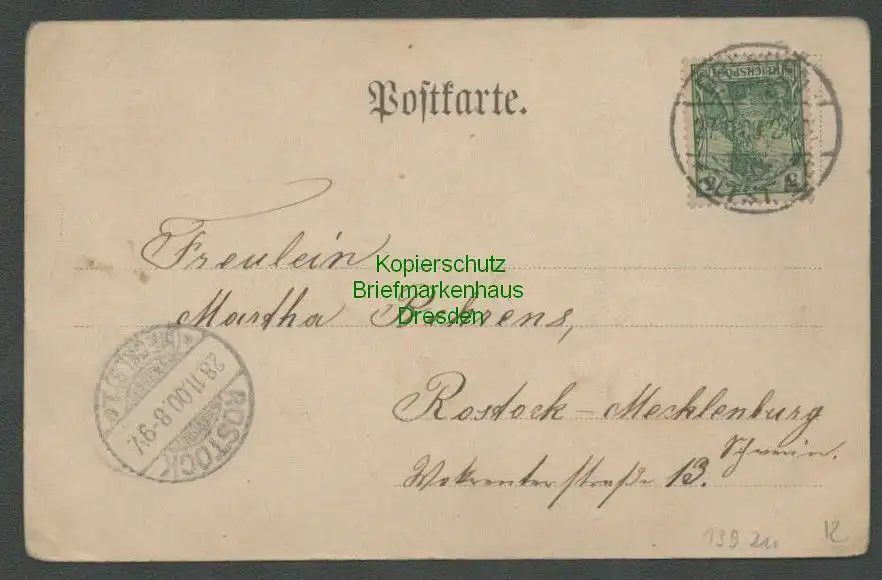 Postkarte.
REICHSPOST
5 5
Freulein
Martha Behrens,
Rostock-Mecklenburg
Schwerin.
Wokrenterstraße 13.
Kopierschutz
Briefmarkenhaus
Dresden
28.11.00.8-9V.
ROSTOCK
139 zu
12